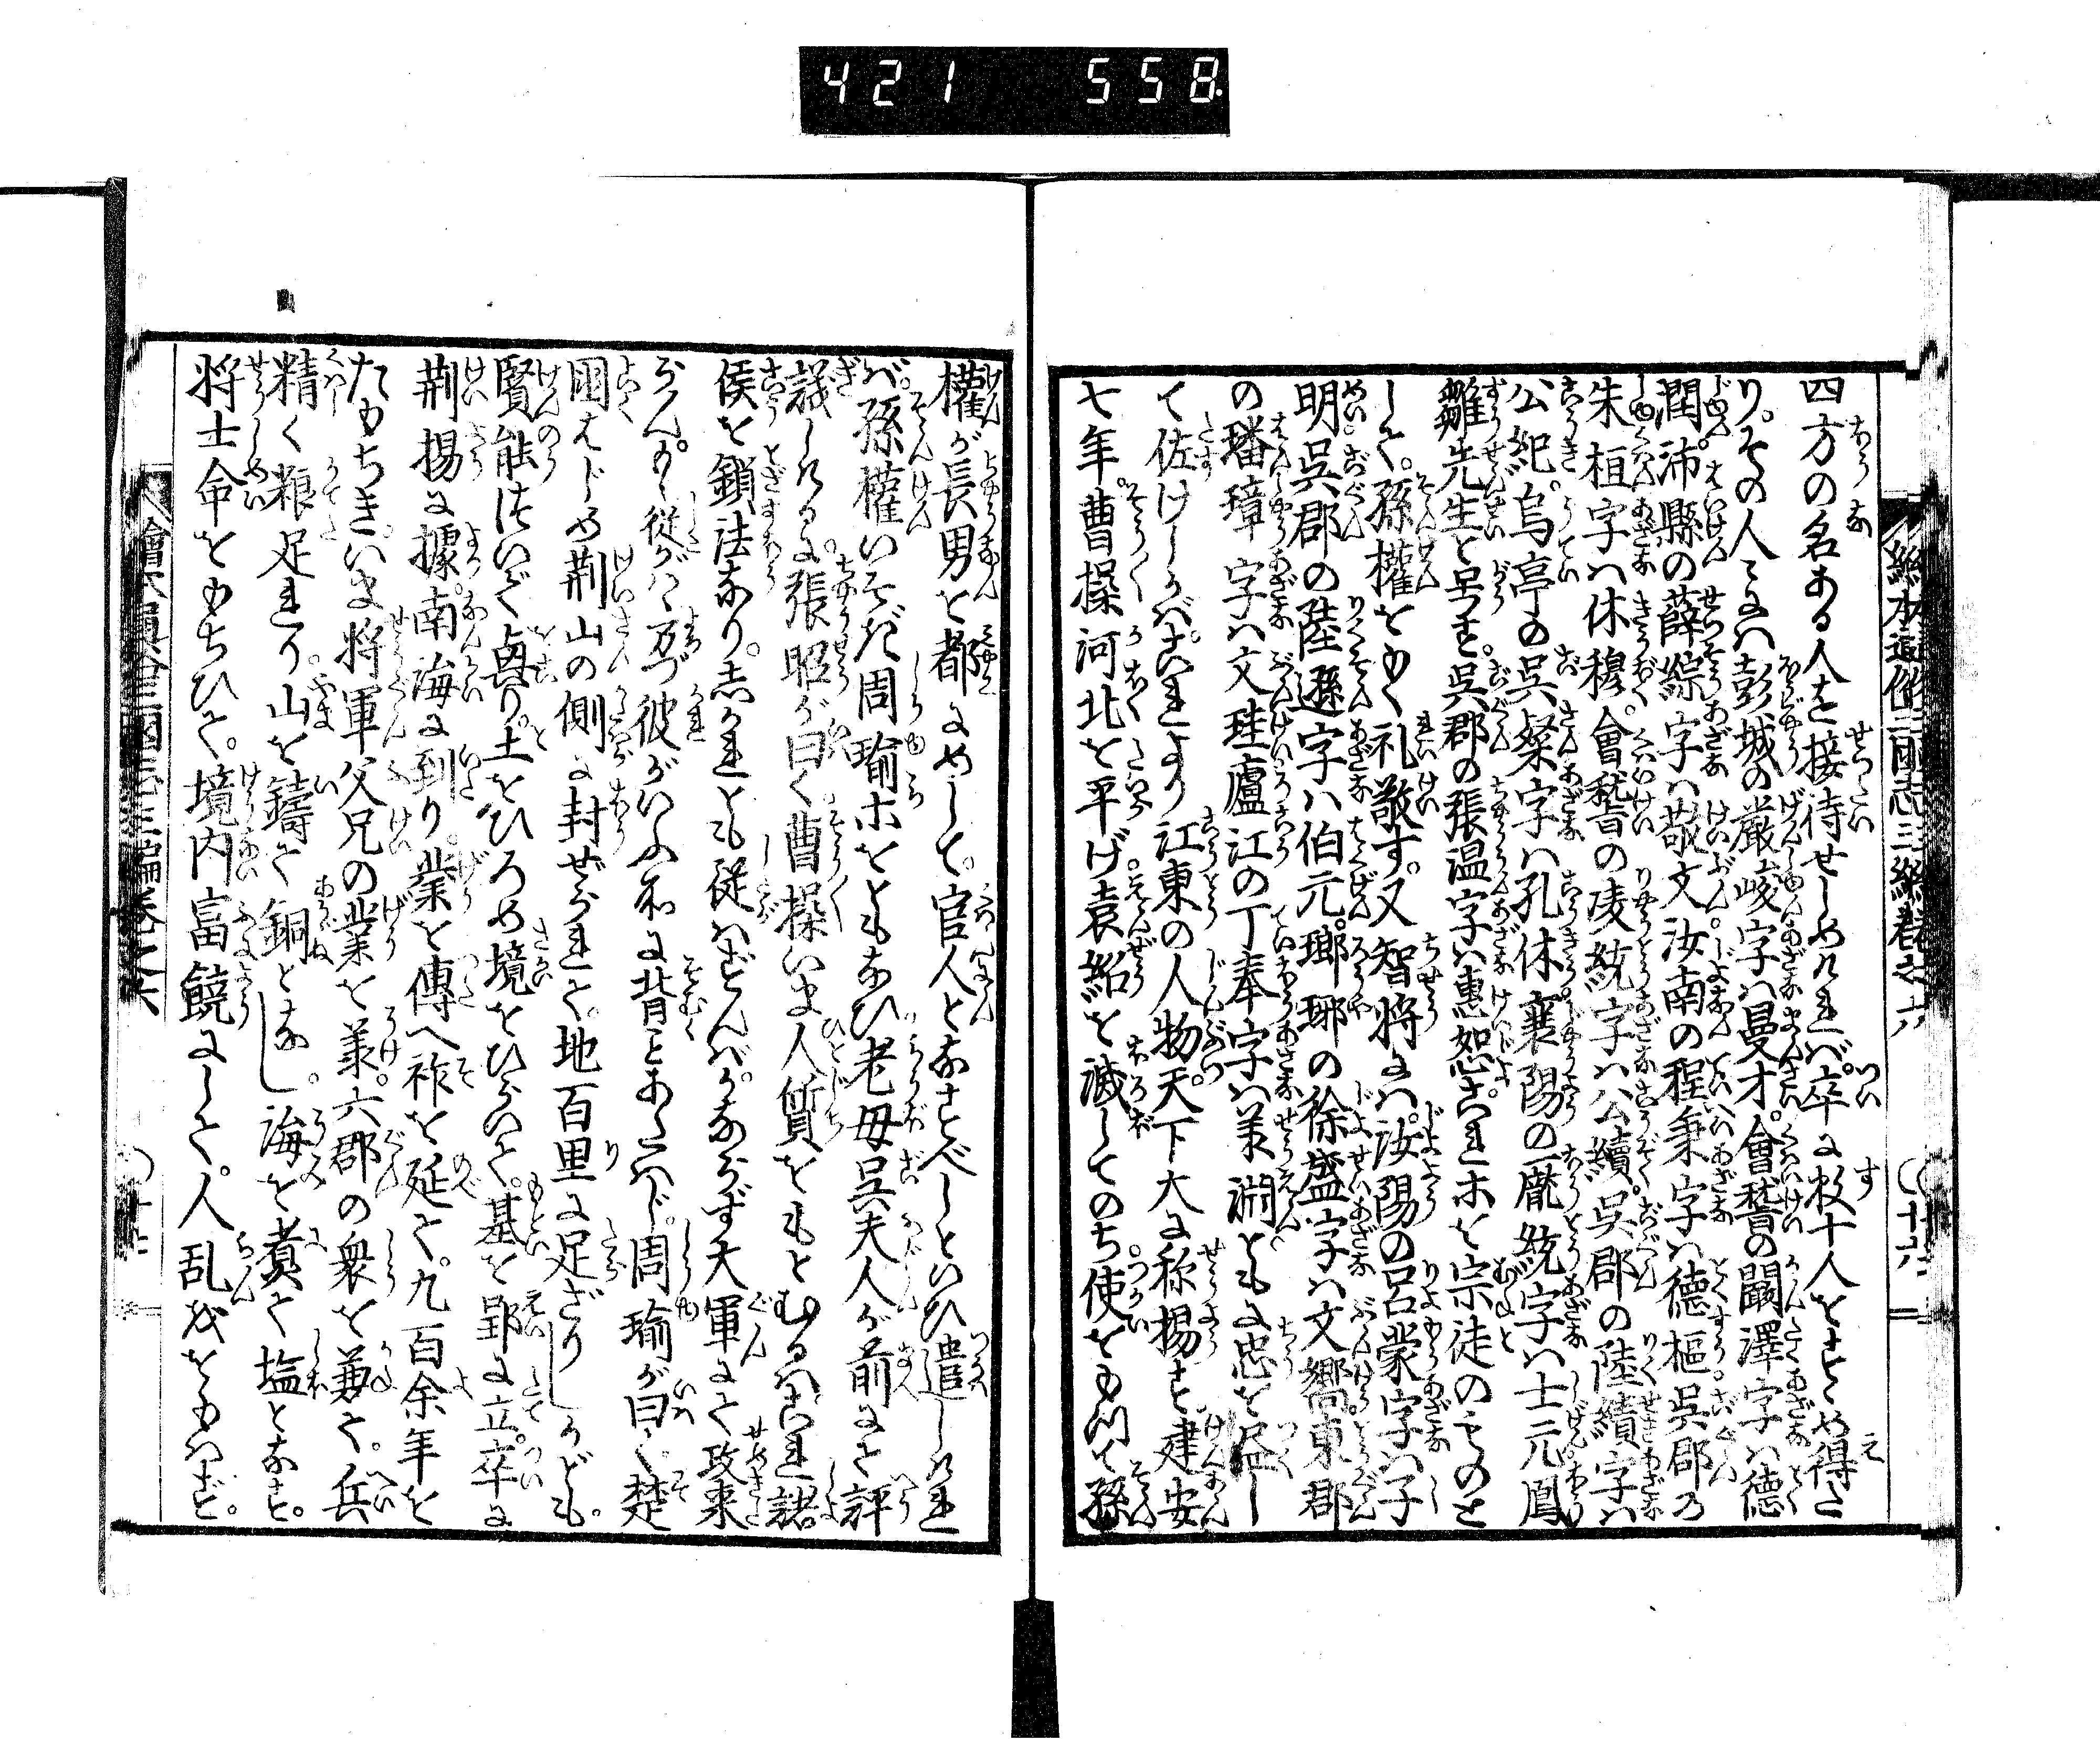 421 558
繪本通俗三國志三編卷之六 〇十六
四方の名ある人を接待せしめければ。卒に数十人をすゝめ得た
り。その人々には彭城の嚴峻字は曼才。會稽の闞澤字は德
潤。沛縣の薛綜字は敬文汝南の程秉字は德樞呉郡の
朱桓字は休穆。會稽の凌統字は公續。呉郡の陸績字は
公紀。烏亭の呉粲字は孔休襄陽の龐統字は士元鳳
雛先生と号す。呉郡の張温字は惠恕これ亦を宗徒のものと
して。孫權をもく礼敬す。又智将には。汝陽の呂蒙字は子
明呉郡の陸遜字は伯元。瑯琊の徐盛字は文嚮。東郡
の璠璋字は文珪廬江の丁奉字は義淵ともに忠を盡し
て佐けしかばこれより江東の人物天下大に称揚す建安
七年。曹操河北を平げ。袁紹を滅してのち使をもつて孫
權が長男を都にめして。官人となすべしといひ遣しけれ
ば。孫權いそぎ周瑜ホをともなひ老母呉夫人が前にて評
議しけるに。張昭が曰く。曹操いま人質をもとむるはこれ諸
侯を鎖法なり。志かれども從はずんば。かならず大軍にて攻來
らん。もし從がはゞ万づ彼がいふ所に背ことあたはじ。周瑜が曰く楚
國はじめ荆山の側に封ぜられて。地百里に足ざりしかども。
賢能注いで輿り。土をひろめ境をひらいて。基を郢に立。卒に
荆揚に據。南海に到り。業を傳へ祚を延て。九百余年を
たもちき。いま将軍父兄の業を羕。六郡の衆を兼て。兵
精く粮足れり。山を鑄て銅となし。海を煮て塩となす。
将士命をもちひて。境内富饒にして。人乱をおもはず。
繪本通俗三國志三編卷之六